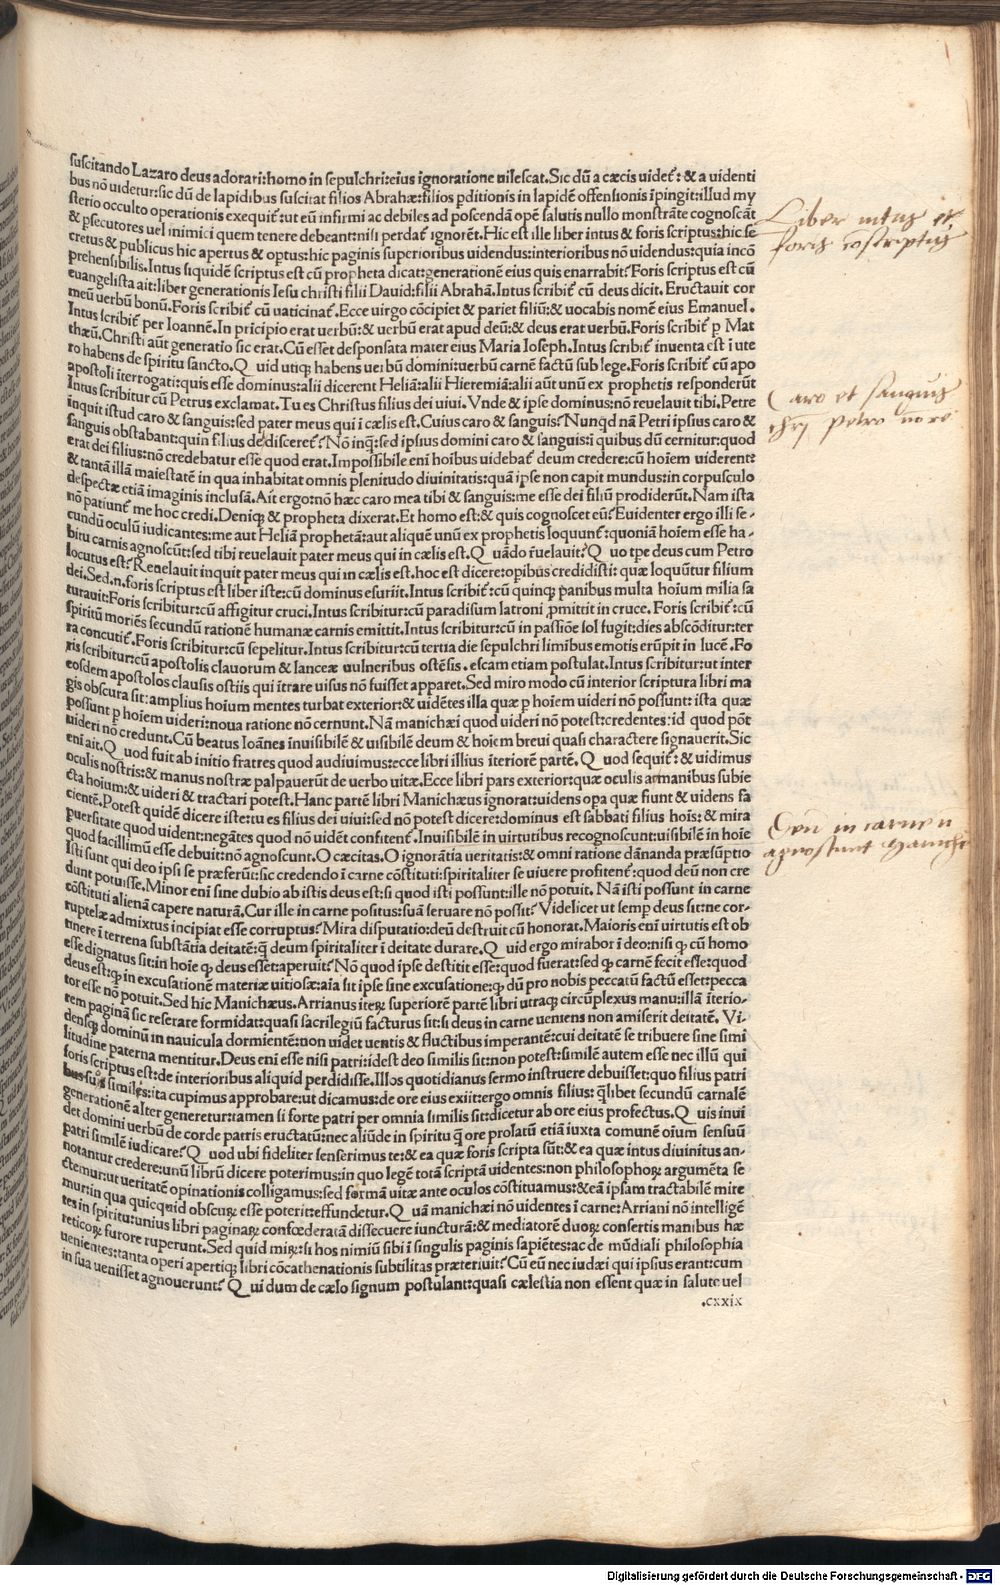 suscitando Lazaro deus adorari:homo in sepulchri:eius ignoratione vilescat.Sic dū a cæcis videt̃:& a videnti
bus nō uidetur:sic dū de lapidibus suscitat filios Abrahæ:filios pditionis in lapidē offensionis īpingit:illud my
sterio occulto operationis exequit̃:ut eū infirmi ac debiles ad poscendā opē salutis nullo monstrāte cognoscāt
& psecutores uel inimici quem tenere debeant:nisi perdat̃ ignorēt.Hic est ille liber intus & foris scriptus:hic se
cretus & publicus hic apertus & optus:hic paginis superioribus uidendus:interioribus nō uidendus:quia incō
prehensibilis.Intus siquidē scriptus est cū propheta dicat:generationē eius quis enarrabit?Foris scriptus est cū
euangelista ait:liber generationis Iesu christi filii Dauid:filii Abrahā.Intus scribit̃ cū deus dicit.Eructauit cor
meū uerbū bonū.Foris scribit̃ cū uaticinat̃.Ecce uirgo cōcipiet & pariet filiū:& uocabis nomē eius Emanuel.
Intus scribit̃ per Ioannē.In pricipio erat uerbū:& uerbū erat apud deū:& deus erat uerbū.Foris scribit̃ p Mat
thæū.Christi aūt generatio sic erat.Cū esset desponsata mater eius Maria Ioseph.Intus scribit̃ inuenta est ī ute
ro habens de spiritu sancto.Quid utiq; habens uerbū domini:uerbū carnē factū sub lege.Foris scribit̃ cū apo
apostoli īterrogati:quis esse dominus:alii dicerent Heliā:alii Hieremiā:alii aūt unū ex prophetis responderūt
Intus scribitur cū Petrus exclamat.Tu es Christus filius dei uiui.Vnde & ipse dominus:nō reuelauit tibi.Petre
inquit istud caro & sanguis:sed pater meus qui ī cælis est.Cuius caro & sanguis?Nunqd nā Petri ipsius caro &
sanguis obstabant:quin filius dei disceret̃?Nō inq̄:sed ipsius domini caro & sanguis:ī quibus dū cernitur:quod
erat dei filius:nō credebatur esse quod erat.Impossibile eni hoibus uidebat̃ deum credere:cū hoiem uiderent:
& tantā illā maiestatē in qua inhabitat omnis plenitudo diuinitatis:quā ipse non capit mundus:in corpusculo
despectæ etiā imaginis inclusā.Ait ergo:nō hæc caro mea tibi & sanguis:me esse dei filiū prodiderūt.Nam ista
nō patiunt̃ me hoc credi.Deniq; & propheta dixerat.Et homo est:& quis cognoscet eū?Euidenter ergo illi se-
cundū oculū iudicantes:me aut Heliā prophetā:aut aliquē unū ex prophetis loquunt̃:quoniā hoiem esse ha-
bitu carnis agnoscūt:sed tibi reuelauit pater meus qui in cælis est.Quādo r̄uelauit?Quo tpe deus cum Petro
locutus est?Reuelauit inquit pater meus qui in cælis est.hoc est dicere:opibus credidisti:quæ loquūtur filium
dei.Sed.n.foris scriptus est liber iste:cū dominus esuriit.Intus scribit̃:cū quinq; panibus multa hoium milia sa
turauit:Foris scribitur:cū affigitur cruci.Intus scribitur:cū paradisum latroni pmittit in cruce.Foris scribit̃:cū
spiritū moriēs secundū rationē humanæ carnis emittit.Intus scribitur:cū in passiōe sol fugit:dies abscōditur:ter
ra concutit̃.Foris scribitur:cū sepelitur.Intus scribitur:cū tertia die sepulchri limibus emotis erūpit in lucē.Fo
ris scribitur:cū apostolis clauorum & lanceæ uulneribus ostēsis.escam etiam postulat.Intus scribitur:ut inter
eosdem apostolos clausis ostiis qui ītrare uisus nō fuisset apparet.Sed miro modo cū interior scriptura libri ma
gis obscura sit:amplius hoium mentes turbat exterior:& uidētes illa quæ p hoiem uideri nō possunt:ista quæ
possunt p hoiem uideri:noua ratione nō cernunt.Nā manichæi quod uideri nō potest:credentes:id quod pōt
uideri nō credunt.Cū beatus Ioānes inuisibilē & uisibilē deum & hoiem breui quasi charactere signauerit.Sic
eni ait.Quod fuit ab initio fratres quod audiuimus:ecce libri illius īteriorē partē.Quod sequit̃:& uidimus
oculis nostris:& manus nostræ palpauerūt de verbo uitæ.Ecce libri pars exterior:quæ oculis a manibus subie
cta hoium:& uideri & tractari potest.Hanc partē libri Manichæus ignorat:uidens opa quæ fiunt & uidens fa
cientē.Potest quidē dicere iste:tu es filius dei uiui:sed nō potest dicere:dominus est sabbati filius hois:& mira
puersitate quod uident:negātes quod nō uidēt confitent̃.Inuisibilē in uirtutibus recognoscunt:uisibilē in hoie
quod facillimū esse debuit:nō agnoscunt.O cæcitas.O ignorātia ueritatis:& omni ratione dānanda præsūptio
Isti sunt qui deo ipsi se præferūt:sic credendo ī carne cōstituti:spiritaliter se uiuere profitent̃:quod deū non cre
dunt potuisse.Minor eni sine dubio ab istis deus est:si quod isti possunt:ille nō potuit.Nā isti possunt in carne
cōstituti alienā capere naturā.Cur ille in carne positus:suā seruare nō possit?Videlicet ut semp deus sit:ne cor-
ruptelæ admixtus incipiat esse corruptus?Mira disputatio:deū destruit cū honorat.Maioris eni uirtutis est ob
tinere ī terrena substātia deitatē:q̄ deum spiritaliter ī deitate durare.Quid ergo mirabor ī deo:nisi q; cū homo
esse dignatus sit:in hoie q; deus esset:aperuit?Nō quod ipse destitit esse:quod fuerat:sed q; carnē fecit esse:quod
deus est:q; in excusationē materiæ uitiosæ:aīa sit ipse sine excusatione:q; dū pro nobis peccatū factū esset:pecca
tor esse nō potuit.Sed hic Manichæus.Arrianus iteꝝ superiorē partē libri utraq; circūplexus manu:illā īterio-
rem paginā sic reserare formidat:quasi sacrilegiū facturus sit:si deus in carne ueniens non amiserit deitatē.Vi-
densq; dominū in nauicula dormientē:non uidet uentis & fluctibus imperantē:cui deitatē se tribuere sine simi
litudine paterna mentitur.Deus eni esse nisi patri:idest deo similis sit:non potest:similē autem esse nec illū qui
foris scriptus est:de interioribus aliquid perdidisse.Illos quotidianus sermo instruere debuisset:quo filius patri
similes:ita cupimus approbare:ut dicamus:de ore eius exiit:ergo omnis filius:q̄libet secundū carnalē
generationē alter generetur:tamen si forte patri per omnia similis sit:dicetur ab ore eius profectus.Quis inui
det domini uerbū de corde patris eructatū:nec aliūde in spiritu q̄ ore prolatū etiā iuxta comunē oium sensuū
patri similē iudicare?Quod ubi fideliter senserimus te:& ea quæ foris scripta sūt:& ea quæ intus diuinitus an-
notantur credere:unū librū dicere poterimus:in quo legē totā scriptā uidentes:non philosophoꝝ argumēta se
ctemur:ut ueritatē opinationis colligamus:sed formā uitæ ante oculos cōstituamus:& eā ipsam tractabilē mite
mur:in qua quicquid obscuꝝ esse poterit:effundetur.Quā manichæi nō uidentes ī carne:Arriani nō intelligē
tes in spiritu:unius libri paginaꝝ confœderatā dissecuere iuncturā:& mediatorē duoꝝ consertis manibus hæ
reticoꝝ furore ruperunt.Sed quid miꝝ:si hos nimiū sibi ī singulis paginis sapiētes:ac de mūdiali philosophia
uenientes:tanta operi apertiq; libri cōcathenationis subtilitas præteriuit?Cū eū nec iudæi qui ipsius erant:cum
in sua uenisset agnouerunt?Qui dum de cælo signum postulant:quasi cælestia non essent quæ in salute uel
.cxxix
Liber intus et
foris cōscriptus
Caro et sanguis
Petro
in carne
agnoscunt
Digitalisierung gefördert durch die Deutsche Forschungsgemeinschaft - DFG